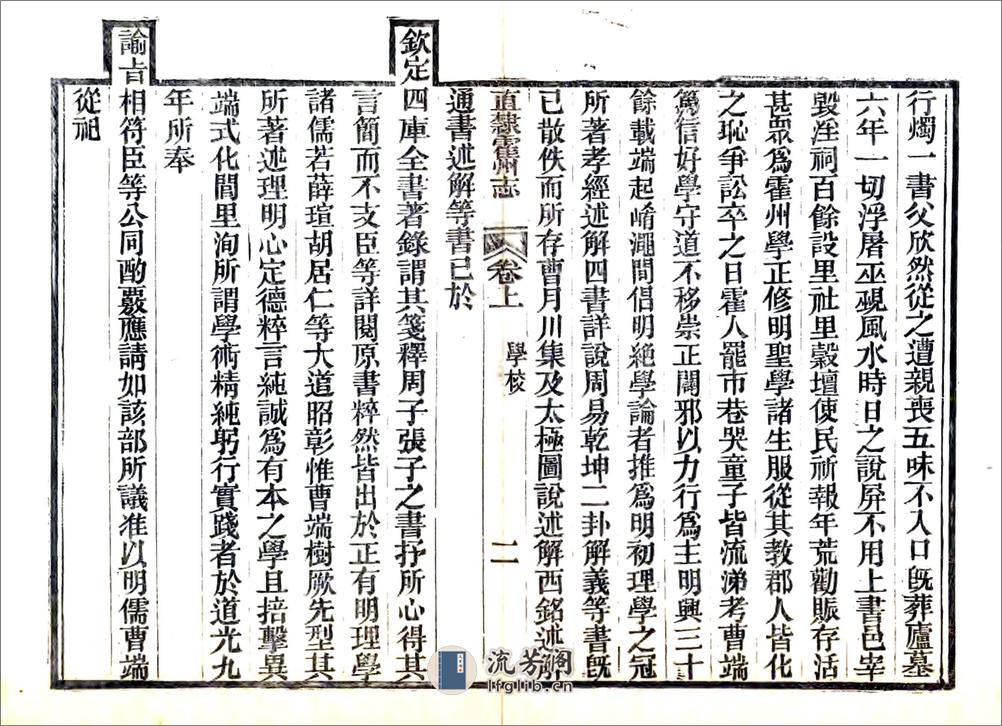 行燭一書父欣然從之遭親喪五味不入口旣葬廬墓
六年一切浮屠巫覡風水時日之說屏不用上書邑宰
毀淫祠百餘設里社里穀壇使民祈報年荒勸賑存活
甚眾爲霍州學正修明聖學諸生服從其教郡人皆化
之恥爭訟卒之日霍人罷市巷哭童子皆流涕考曹端
篤信好學守道不移崇正闢邪以力行爲主明興三十
餘載端起崤澠間倡明絶學論者推爲明初理學之冠
所著孝經述解四書詳說周易乾坤二卦解義等書旣
已散佚而所存曹月川集及太極圖說述解西銘述解
直隸霍州志 卷上 學校 二
通書述解等書已於
欽定四庫全書著錄謂其箋釋周子張子之書抒所心得其
言簡而不支臣等詳閱原書粹然皆出於正有明理學
諸儒若薛瑄胡居仁等大道昭彰惟曹端樹厥先型其
所著述理明心定德粹言純誠爲有本之學且掊擊異
端式化閭里洵所謂學術精純躬行實踐者於道光九
年所奉
諭旨相符臣等公同酌覈應請如該部所議准以明儒曹端
從祀
流芳閣
lfglib.cn